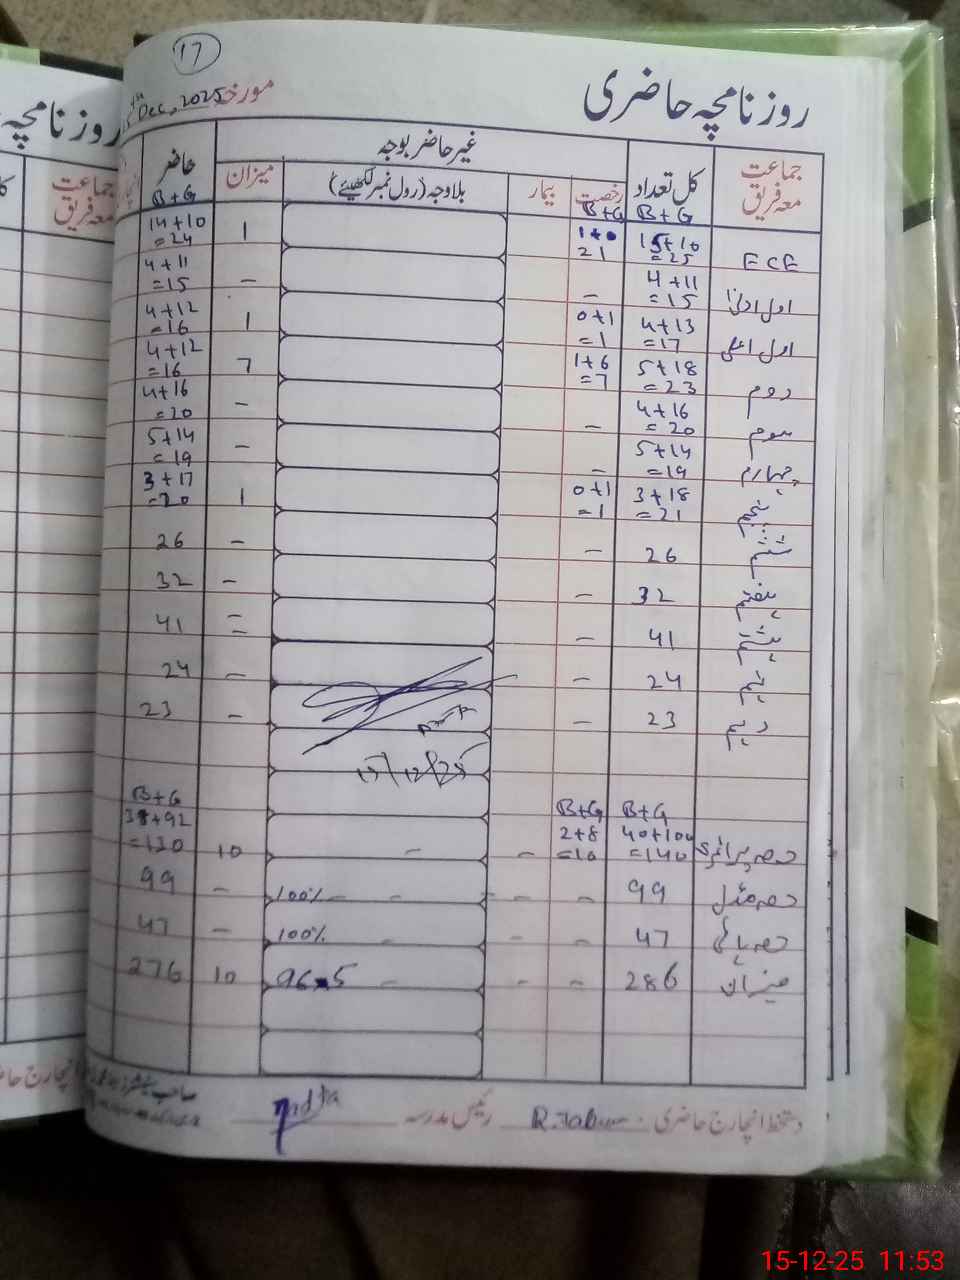 17
روزنامچہ حاضری مورخہ 15th Dec, 2025
جماعت معہ فریق کل تعداد B+G غیر حاضر بوجہ حاضر B+G
رخصت B+G بیمار بلاوجہ (رول نمبر لکھیئے) میزان
ECE 15+10 =25 1+0 21 1 14+10 =24
اول ادنیٰ 4+11 =15 – – 4+11 =15
اول اعلیٰ 4+13 =17 0+1 =1 1 4+12 =16
دوم 5+18 =23 1+6 =7 7 4+12 =16
سوم 4+16 =20 – – 4+16 =20
چہارم 5+14 =19 – – 5+14 =19
پنجم 3+18 =21 0+1 =1 1 3+17 =20
ششم 26 – – 26
ہفتم 32 – – 32
ہشتم 41 – = 41
نہم 24 – – 24
دہم 23 – – 23
15/12/25
B+G B+G B+G
حصہ پرائمری 40+100 =140 2+8 =10 – – 10 38+92 =130
حصہ مڈل 99 – – - - 100% – 99
حصہ ہائی 47 – – - 100% – 47
میزان 286 – – - 96.5 10 276
دستخط انچارج حاضری R.Tabum رئیس مدرسہ
روزنامچہ
جماعت معہ فریق
15-12-25 11:53